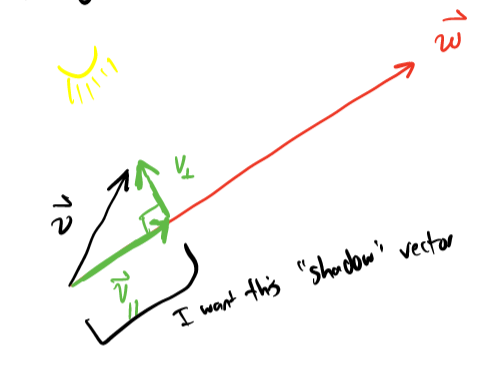 w⃗
v⃗
v⊥
v⃗∥
I want this "shadow" vector